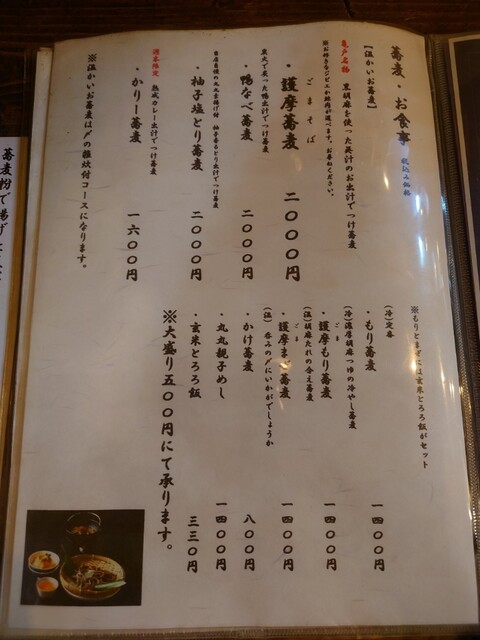 蕎麦・お食事 税込み価格
【温かいお蕎麦】
亀戸名物 黒胡麻を使った具汁のお出汁でつけ蕎麦
※お好きなジビエか鶏肉が選べます。お尋ねください。
ごまそば
・護摩蕎麦 二〇〇〇円
炭火で炙った鴨出汁でつけ蕎麦
・鴨なべ蕎麦 二〇〇〇円
柚子香るとり出汁でつけ蕎麦
・柚子塩とり蕎麦 二〇〇〇円
週末限定 熟成カレー出汁でつけ蕎麦
・かりー蕎麦 一六〇〇円
※温かいお蕎麦は〆の雑炊付コースになります。
※もりとまぜには玄米とろろ飯がセット
(冷)定番
・もり蕎麦 一四〇〇円
(冷)濃厚胡麻つゆの冷やし蕎麦
ごま
・護摩もり蕎麦 一四〇〇円
(温)胡麻たれの合え蕎麦
ごま
・護摩まぜ蕎麦 一四〇〇円
(温)呑みの〆にいかがでしょうか
・かけ蕎麦 八〇〇円
・丸丸親子めし 一四〇〇円
・玄米とろろ飯 三三〇円
※大盛り五〇〇円にて承ります。
蕎麦粉で揚げ